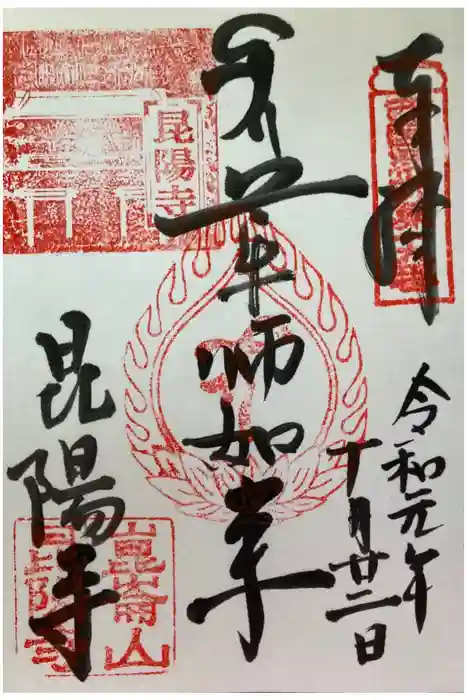 奉拝
令和元年
十月廿二日
薬師如来
昆陽寺
昆陽寺
崑崙山
昆陽寺